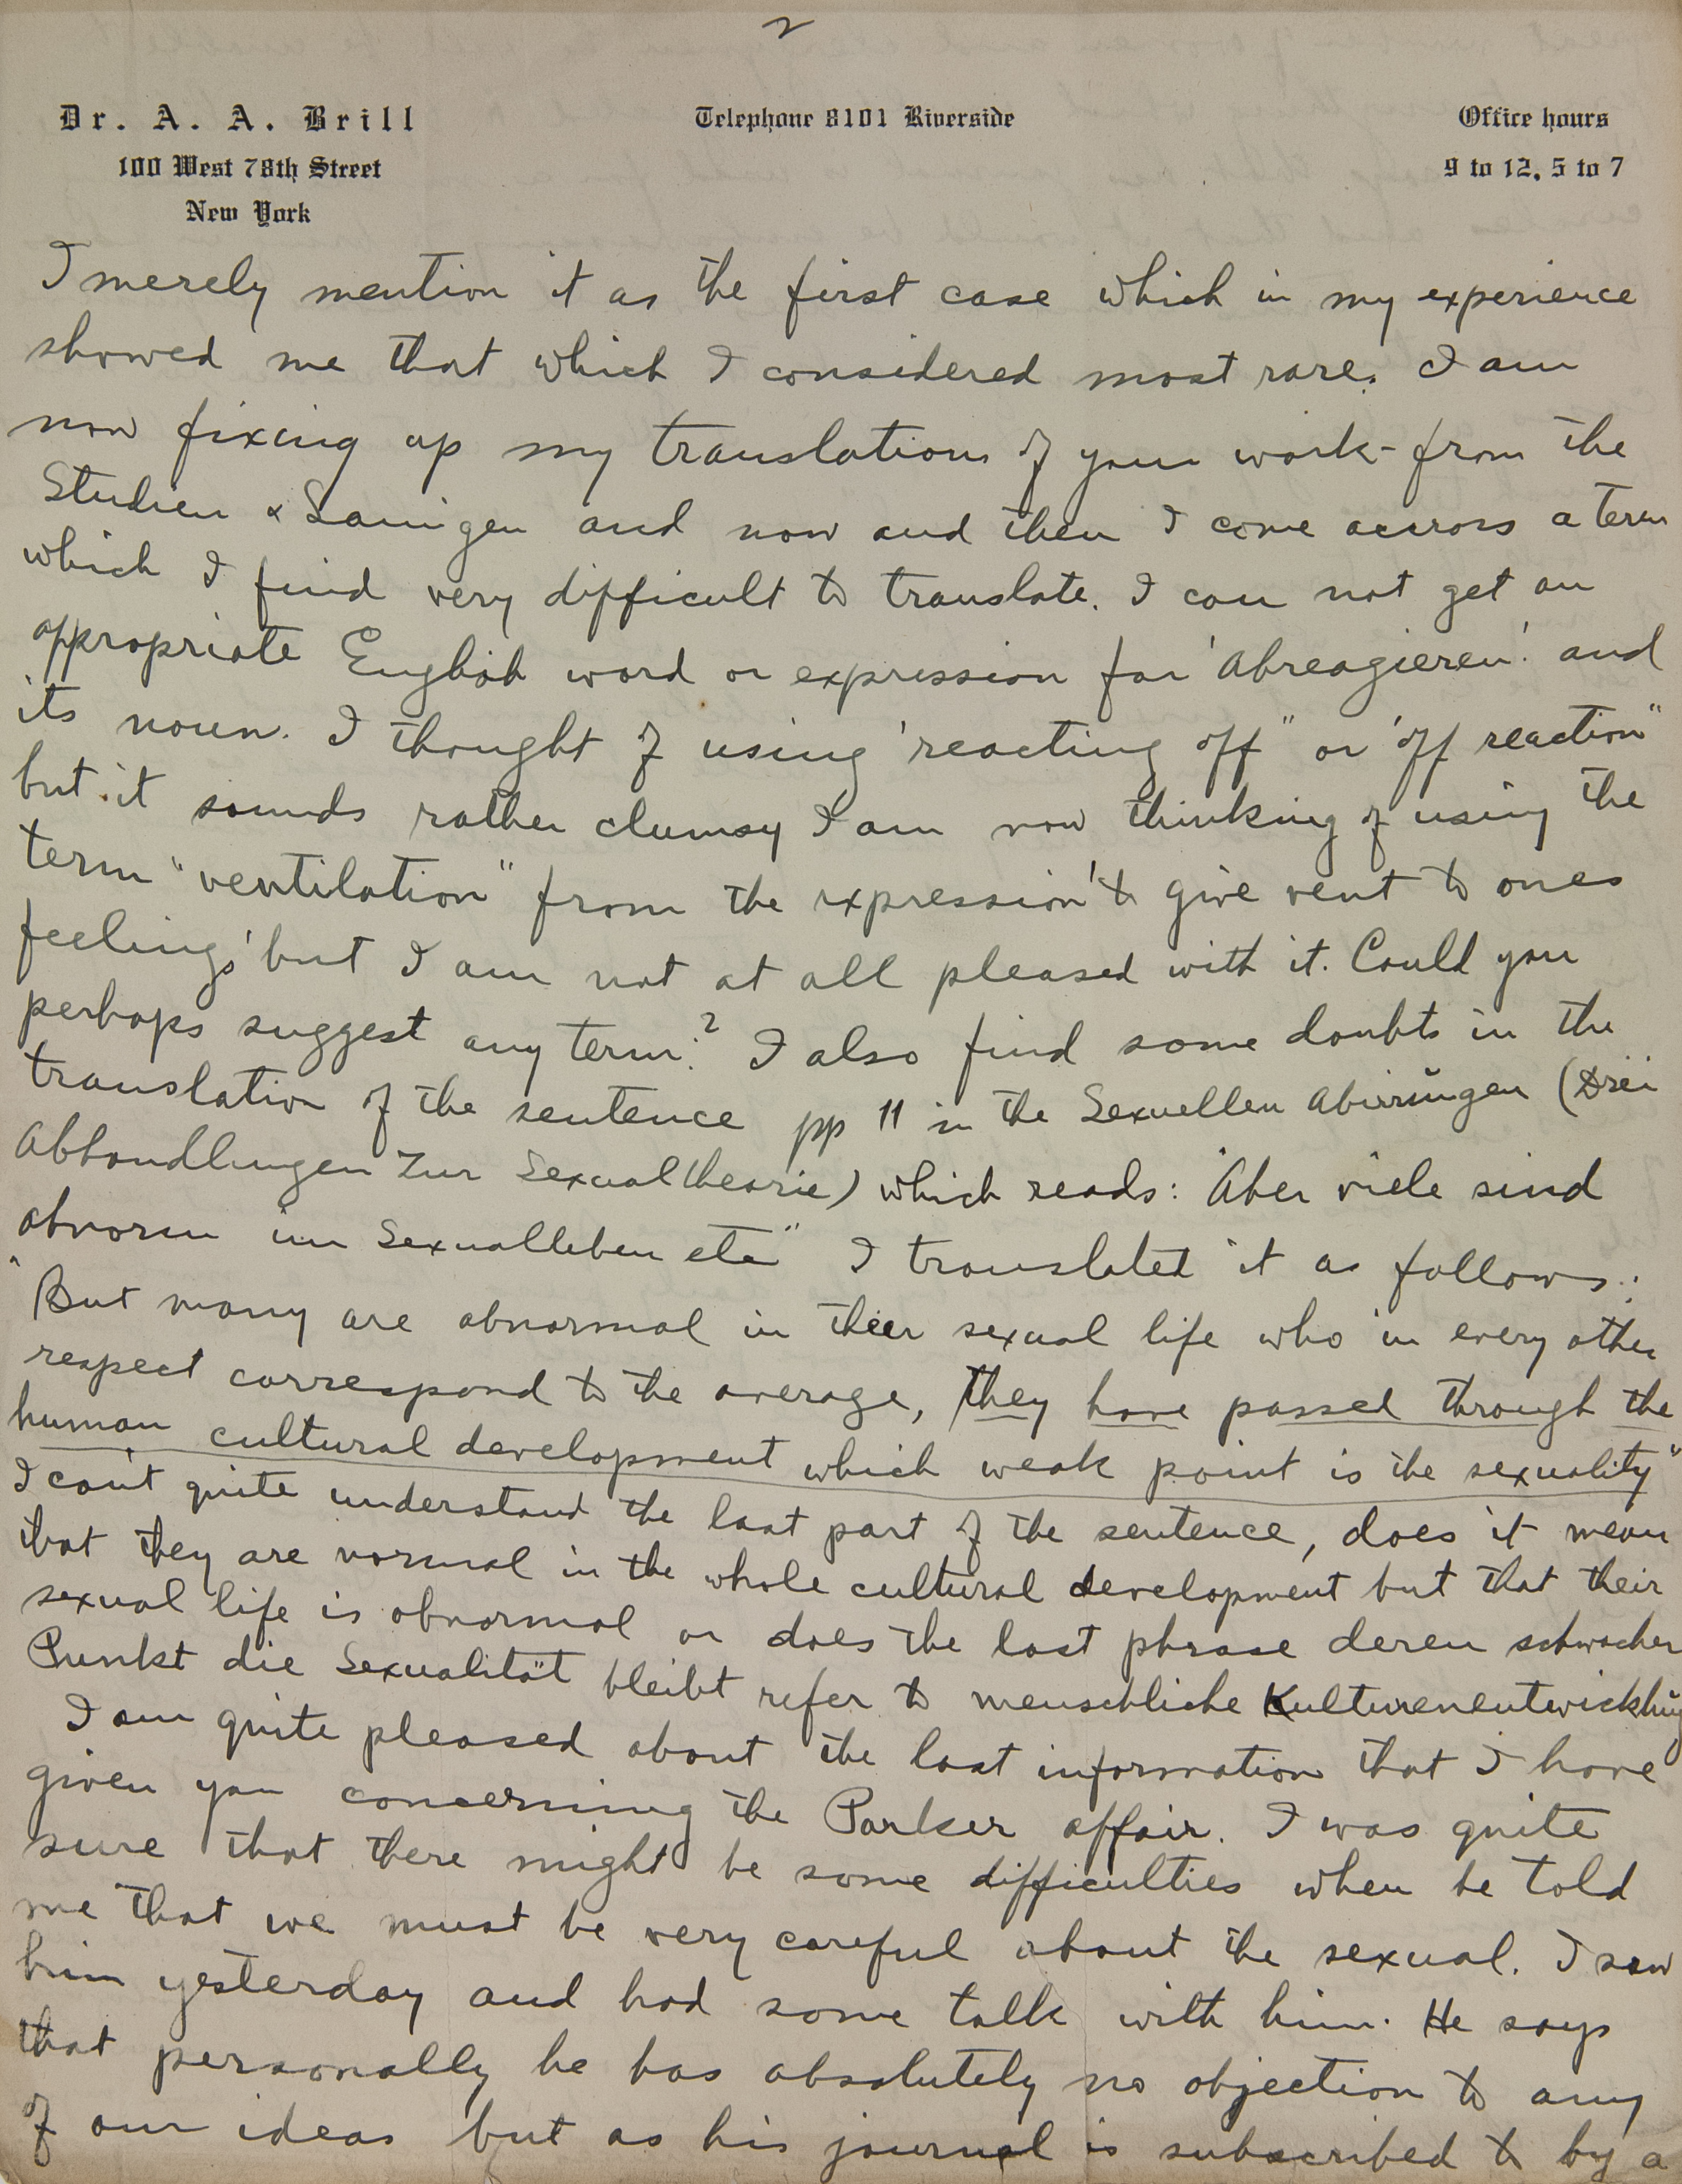 2
Dr. A. A. Brill
100 West 78th Street
New York
Telephone 8101 Riverside
Office hours
9 to 12, 5 to 7
I merely mention it as the first case which in my experience
showed me that which I considered most rare. I am
now fixing up my translations of your work - from the
Studien & and now and then I come accross a term
which I find very difficult to translate. I can not get an
appropriate English word or expression for 'Abreagieren' and
its noun. I thought of using 'reacting off" or 'off reaction"
but it sounds rather clumsy I am now thinking of using the
term "ventilation" from the expression 'to give vent to ones
feelings' but I am not at all pleased with it. Could you
perhaps suggest any term? I also find some doubts in the
translation of the sentence pp 11 in the Sexuellen Abirrungen (Drei
Abhandlungen zur Sexualtheorie) which reads: "Aber viele sind
abnorm im Sexualleben etc" I translated it as follows:
"But many are abnormal in their sexual life who in every other
respect correspond to the average, they have passed through the
human cultural development which weak point is the sexuality"
I can't quite understand the last part of the sentence, does it mean
that they are normal in the whole cultural development but that their
sexual life is abnormal or does the last phrase deren schwacher
Punkt die Sexualität bleibt refer to menschliche Kulturenentwicklung
I am quite pleased about the last information that I have
given you concerning the Parker affair. I was quite
sure that there might be some difficulties when he told
me that we must be very careful about the sexual. I saw
him yesterday and had some talk with him. He says
that personally he has absolutely no objection to any
of our ideas but as his journal is subscribed to by a